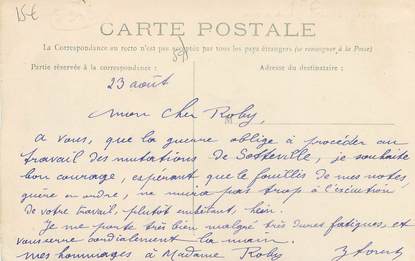 15€
CARTE POSTALE
La Correspondance au recto n'est pas acceptée par tous les pays étrangers (se renseigner à la Poste)
Partie réservée à la correspondance : Adresse du destinataire :
23 août
Mon cher Roby,
A vous, que la guerre oblige à procéder au
travail des mutations de Sotteville, je souhaite
bon courage, espérant que le fouillis de mes notes,
guère en ordre, ne nuira pas trop à l'exécution
de votre travail, plutôt embêtant, hein.
Je me porte très bien malgré très dures fatigues, et
vous serre cordialement la main.
mes hommages à Madame Roby